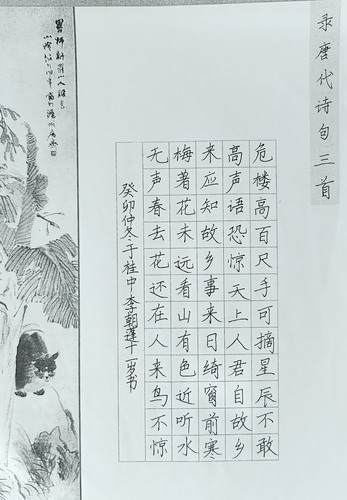 录唐代诗句三首
危楼高百尺手可摘星辰不敢
高声语恐惊天上人君自故乡
来应知故乡事来日绮窗前寒
梅著花未远看山有色近听水
无声春去花还在人来鸟不惊
癸卯仲冬于桂中李朝十一岁书